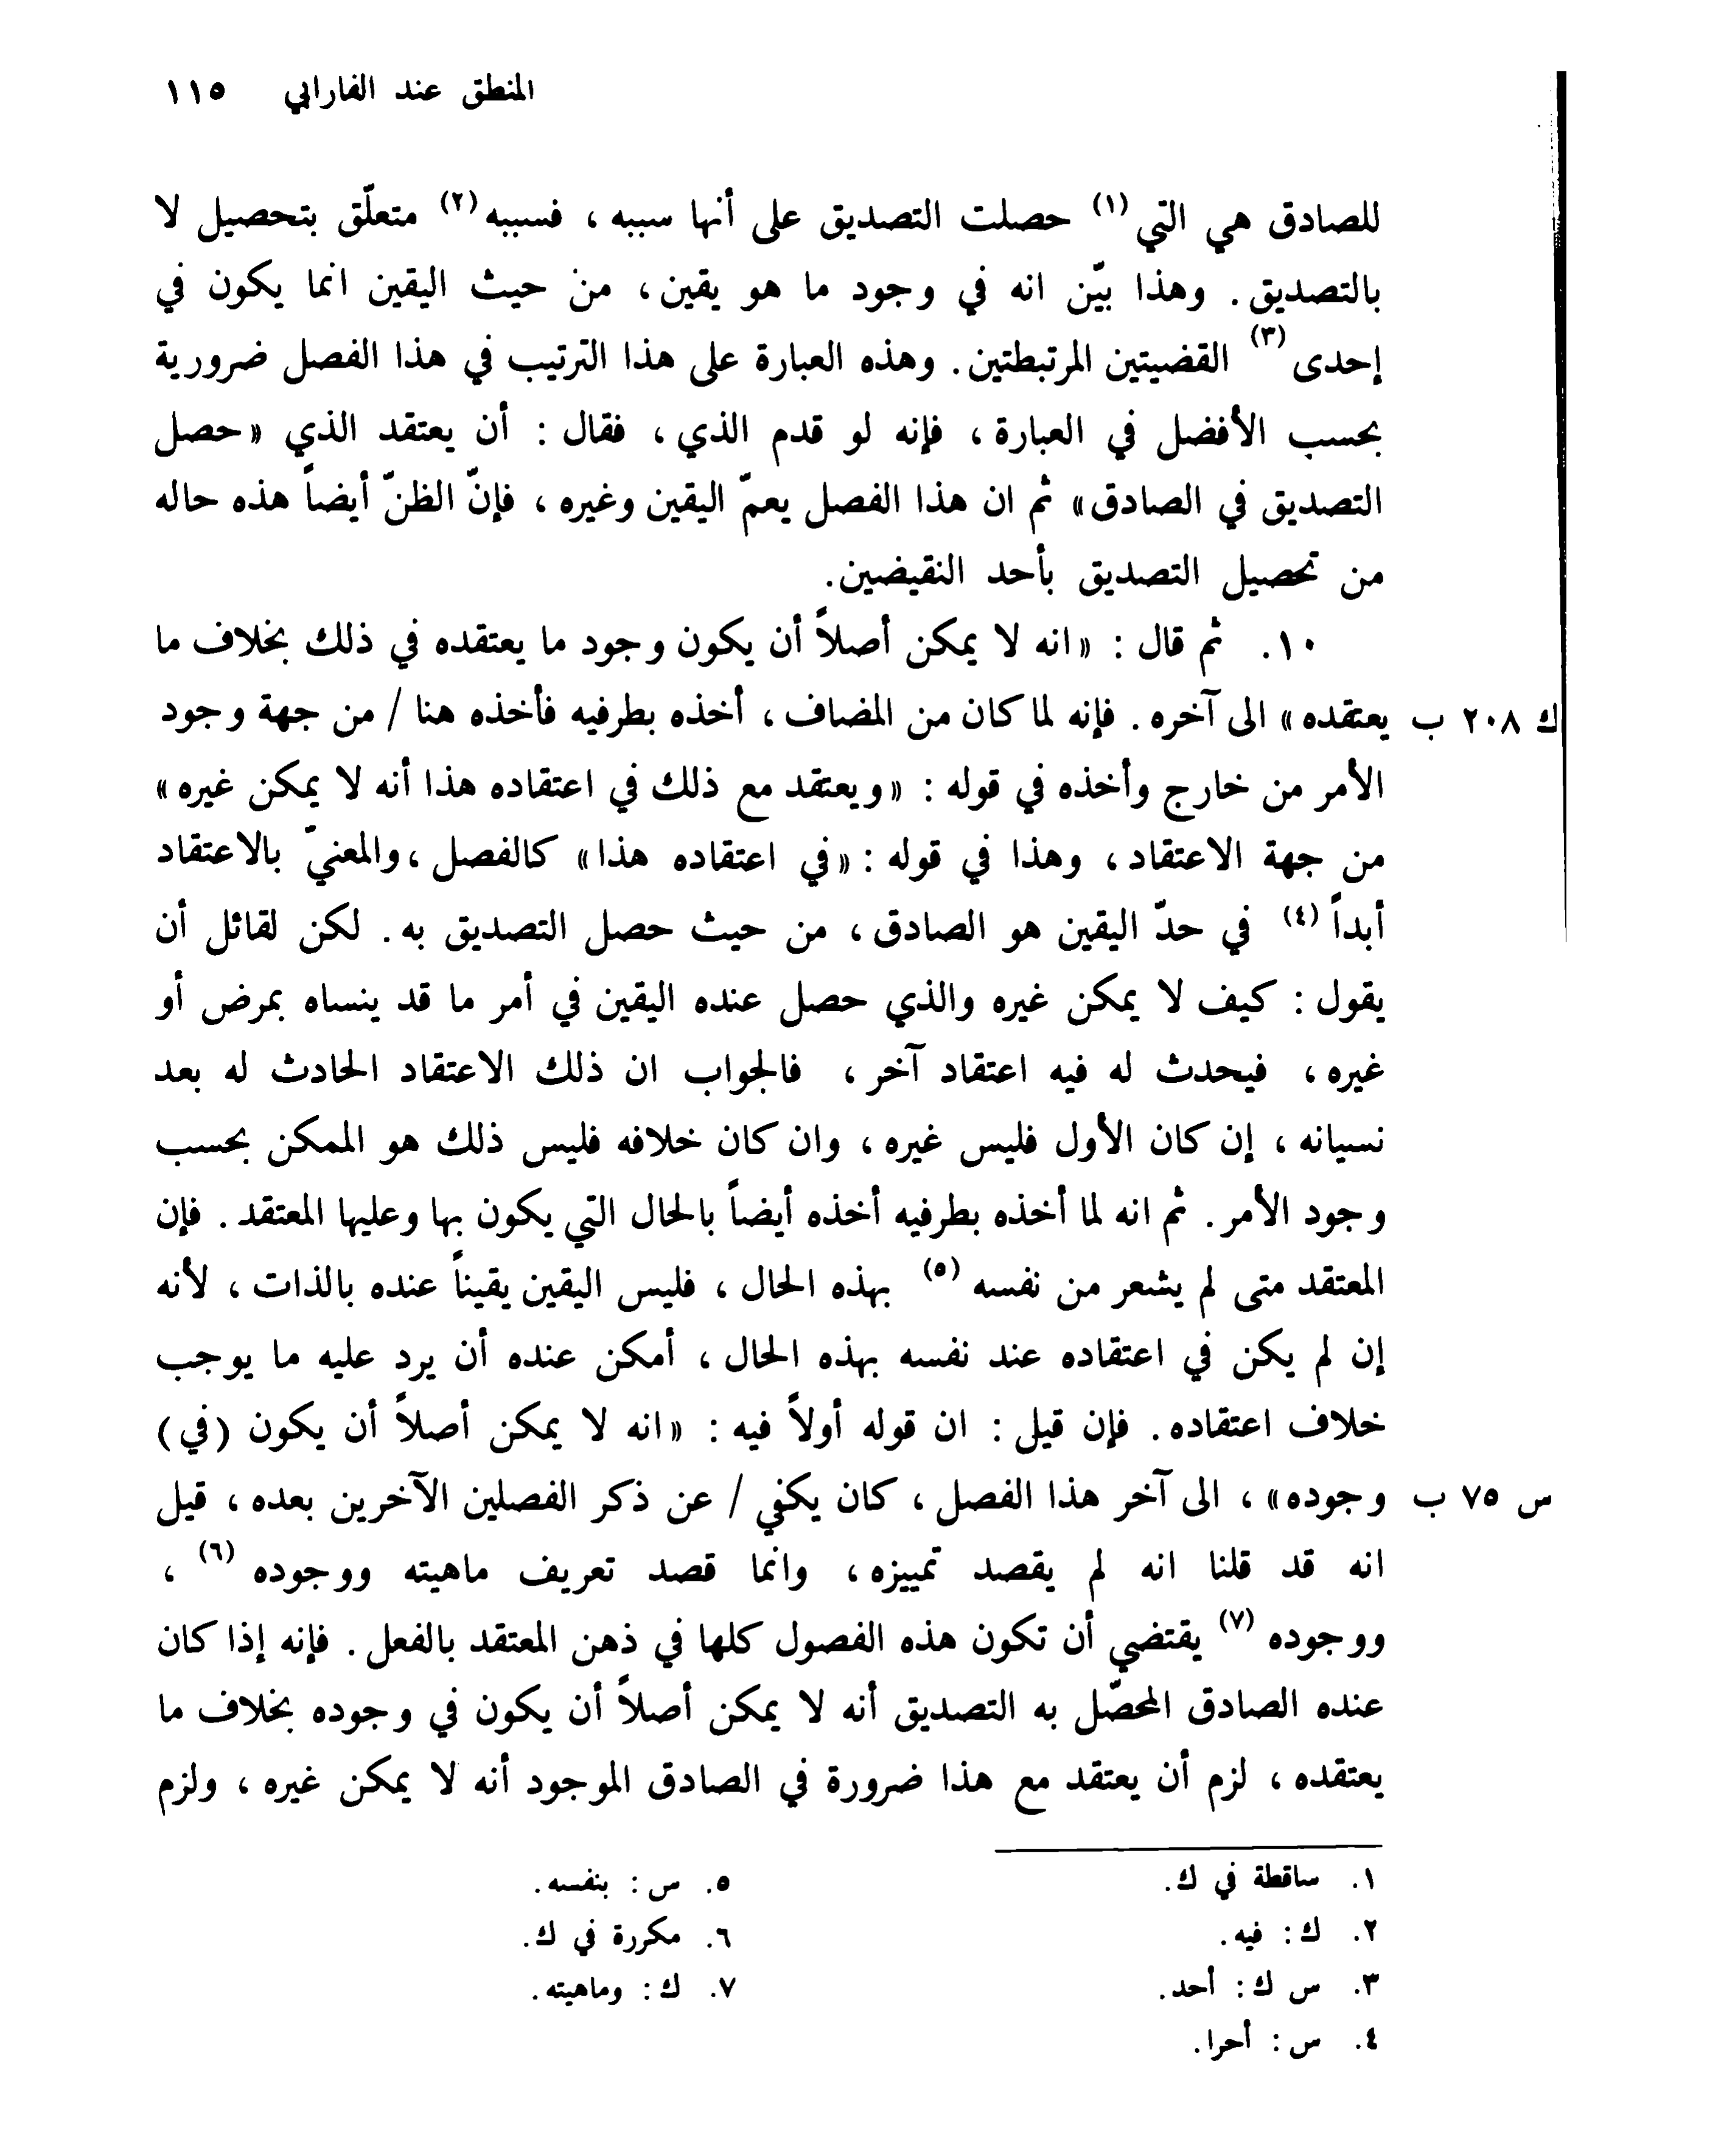 المنطق عند الفارابي ١١٥
للصادق هي التي (١) حصلت التصديق على أنها سببه ، فسببه (٢) متعلّق بتحصيل لا
بالتصديق . وهذا بيّن انه في وجود ما هو يقين ، من حيث اليقين انما يكون في
إحدى (٣) القضيتين المرتبطتين . وهذه العبارة على هذا الترتيب في هذا الفصل ضرورية
بحسب الأفضل في العبارة ، فإنه لو قدم الذي ، فقال : أن يعتقد الذي « حصل
التصديق في الصادق » ثم ان هذا الفصل يعمّ اليقين وغيره ، فإنّ الظنّ أيضاً هذه حاله
من تحصيل التصديق بأحد النقيضين .
١٠. ثم قال : « انه لا يمكن أصلاً أن يكون وجود ما يعتقده في ذلك بخلاف ما
ك ٢٠٨ ب يعتقده » الى آخره . فإنه لما كان من المضاف ، أخذه بطرفيه فأخذه هنا / من جهة وجود
الأمر من خارج وأخذه في قوله : « ويعتقد مع ذلك في اعتقاده هذا أنه لا يمكن غيره »
من جهة الاعتقاد ، وهذا في قوله : « في اعتقاده هذا » كالفصل ، والمعنيّ بالاعتقاد
أبداً (٤) في حدّ اليقين هو الصادق ، من حيث حصل التصديق به . لكن لقائل أن
يقول : كيف لا يمكن غيره والذي حصل عنده اليقين في أمر ما قد ينساه بمرض أو
غيره ، فيحدث له فيه اعتقاد آخر ، فالجواب ان ذلك الاعتقاد الحادث له بعد
نسيانه ، إن كان الأول فليس غيره ، وان كان خلافه فليس ذلك هو الممكن بحسب
وجود الأمر . ثم انه لما أخذه بطرفيه أخذه أيضاً بالحال التي يكون بها وعليها المعتقد . فإن
المعتقد متى لم يشعر من نفسه (٥) بهذه الحال ، فليس اليقين يقيناً عنده بالذات ، لأنه
إن لم يكن في اعتقاده عند نفسه بهذه الحال ، أمكن عنده أن يرد عليه ما يوجب
خلاف اعتقاده . فإن قيل : ان قوله أولاً فيه : « انه لا يمكن أصلاً أن يكون (في)
س ٧٥ ب وجوده » ، الى آخر هذا الفصل ، كان يكفي / عن ذكر الفصلين الآخرين بعده ، قيل
انه قد قلنا انه لم يقصد تمييزه ، وانما قصد تعريف ماهيته ووجوده (٦) ،
ووجوده (٧) يقتضي أن تكون هذه الفصول كلها في ذهن المعتقد بالفعل . فإنه إذا كان
عنده الصادق المحصّل به التصديق أنه لا يمكن أصلاً أن يكون في وجوده بخلاف ما
يعتقده ، لزم أن يعتقد مع هذا ضرورة في الصادق الموجود أنه لا يمكن غيره ، ولزم
١. ساقطة في ك.
٢. ك : فيه.
٣. س ك : أحد.
٤. س : أحرا.
٥. س : بنفسه.
٦. مكررة في ك.
٧. ك : وماهيته.